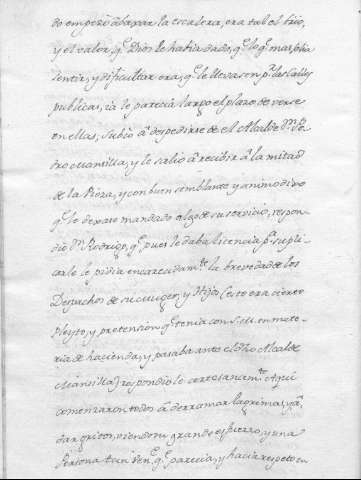 do empezó á baxar la escalera, era tal el brio,
y el valor, q.e Dios le havia dado, q.e lo q.e mas podia
sentir, y dificultar era, q.e le llevasen p.r las calles
publicas, iá le parecia largo el plazo de verse
en ellas, subió á despedirse de el Alcalde D.n Pe
dro Mansilla, y le salió á recibir á la mitad
de la Pieza, y con buen semblante y animo dixo
q.e le dexase mandado algo de su servicio, respon
dió D.n Rodrigo, q.e pues le daba licencia p.a supli
carle le pidia encarecidam.te la brevedad de los
Despachos de su muger, y Hijos (esto era cierto
Pleyto, y pretension q.e tenia con S.M. en mate
ria de hacienda, y pasaba ante el dho Alcalde
Mansilla) respondiole cortesanam.te Aqui
comenzaron todos á derramar lagrimas, y á
dar gritos, viendo su grande esfuerzo, y una
Persona q.e parecia, y hacia respeto